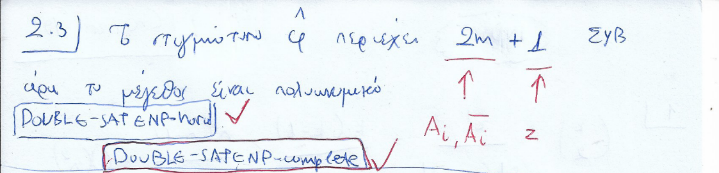 2.3) Το στιγμιότυπο φ̂ περιέχει 2m + 1 ΣυΒ
άρα το μέγεθος είναι πολυωνυμικό
DOUBLE-SAT ∈ NP-hard ✓ Ai, A̅i̅ z
DOUBLE-SAT ∈ NP-complete ✓